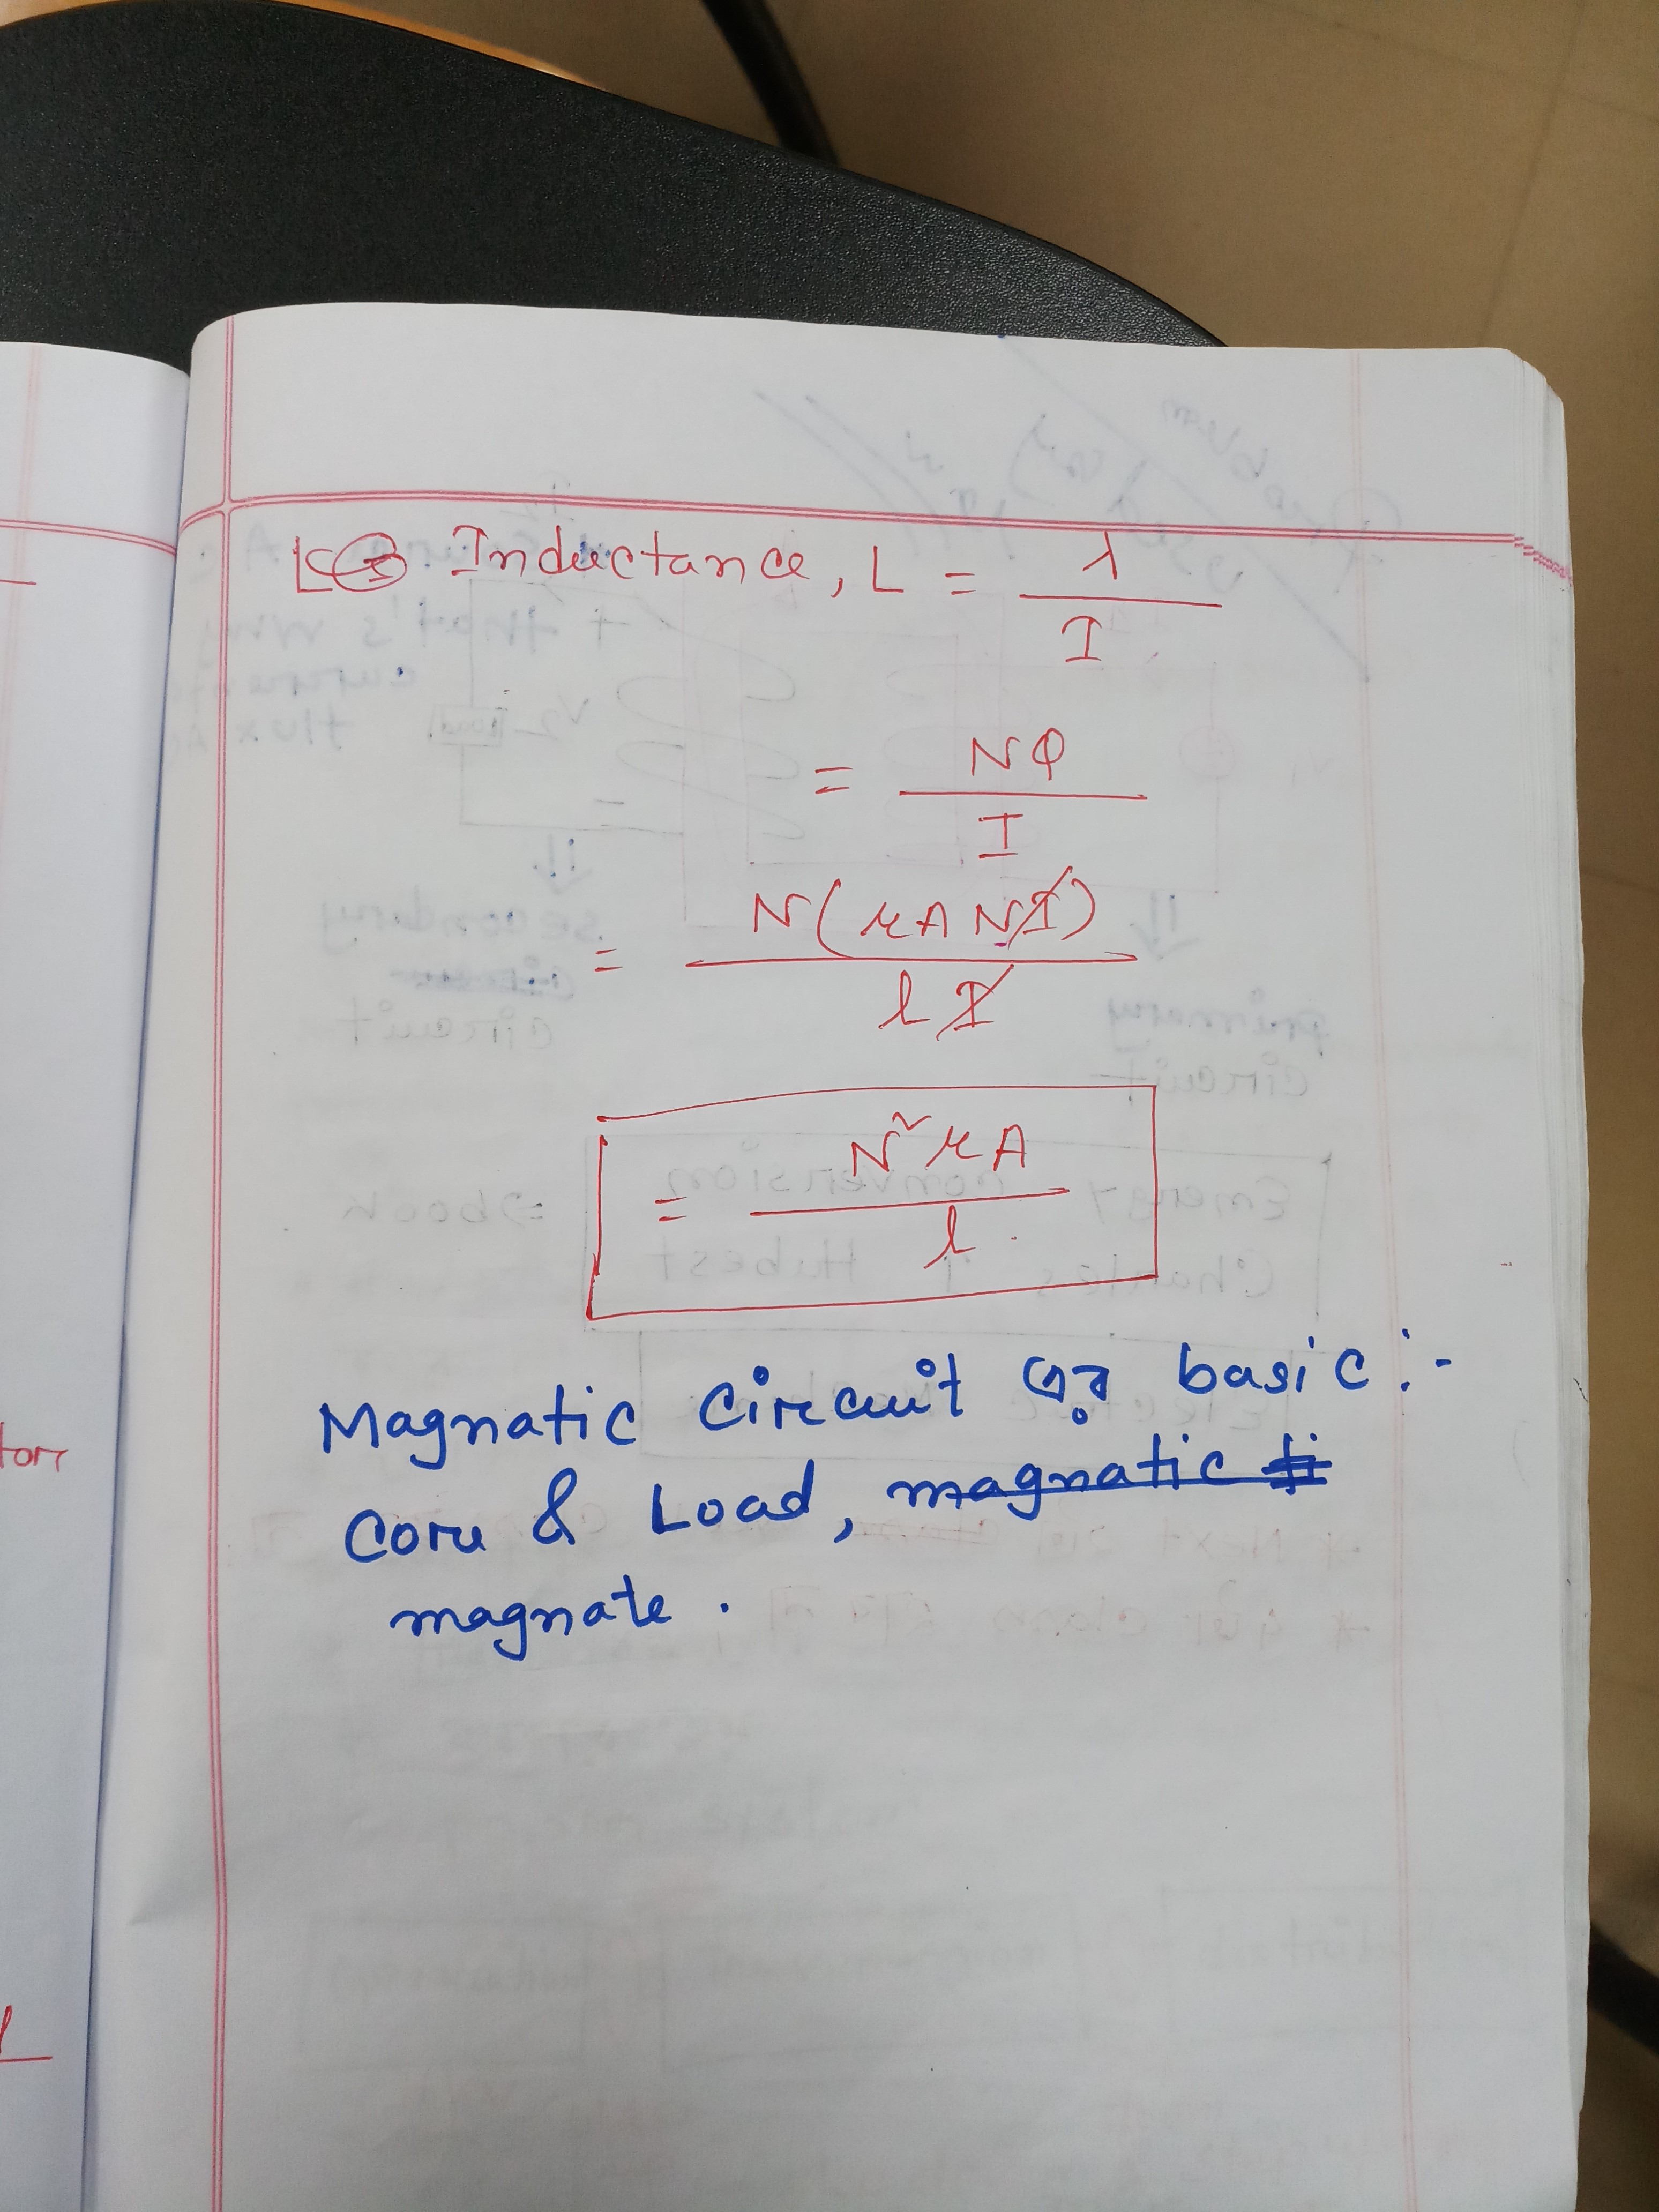 Inductance, L = λ / I
= NΦ / I
= N(μANI) / lI
= N²μA / l
Magnatic Circuit এর basic :-
Core & Load, magnatic ti
magnate .
tor
l